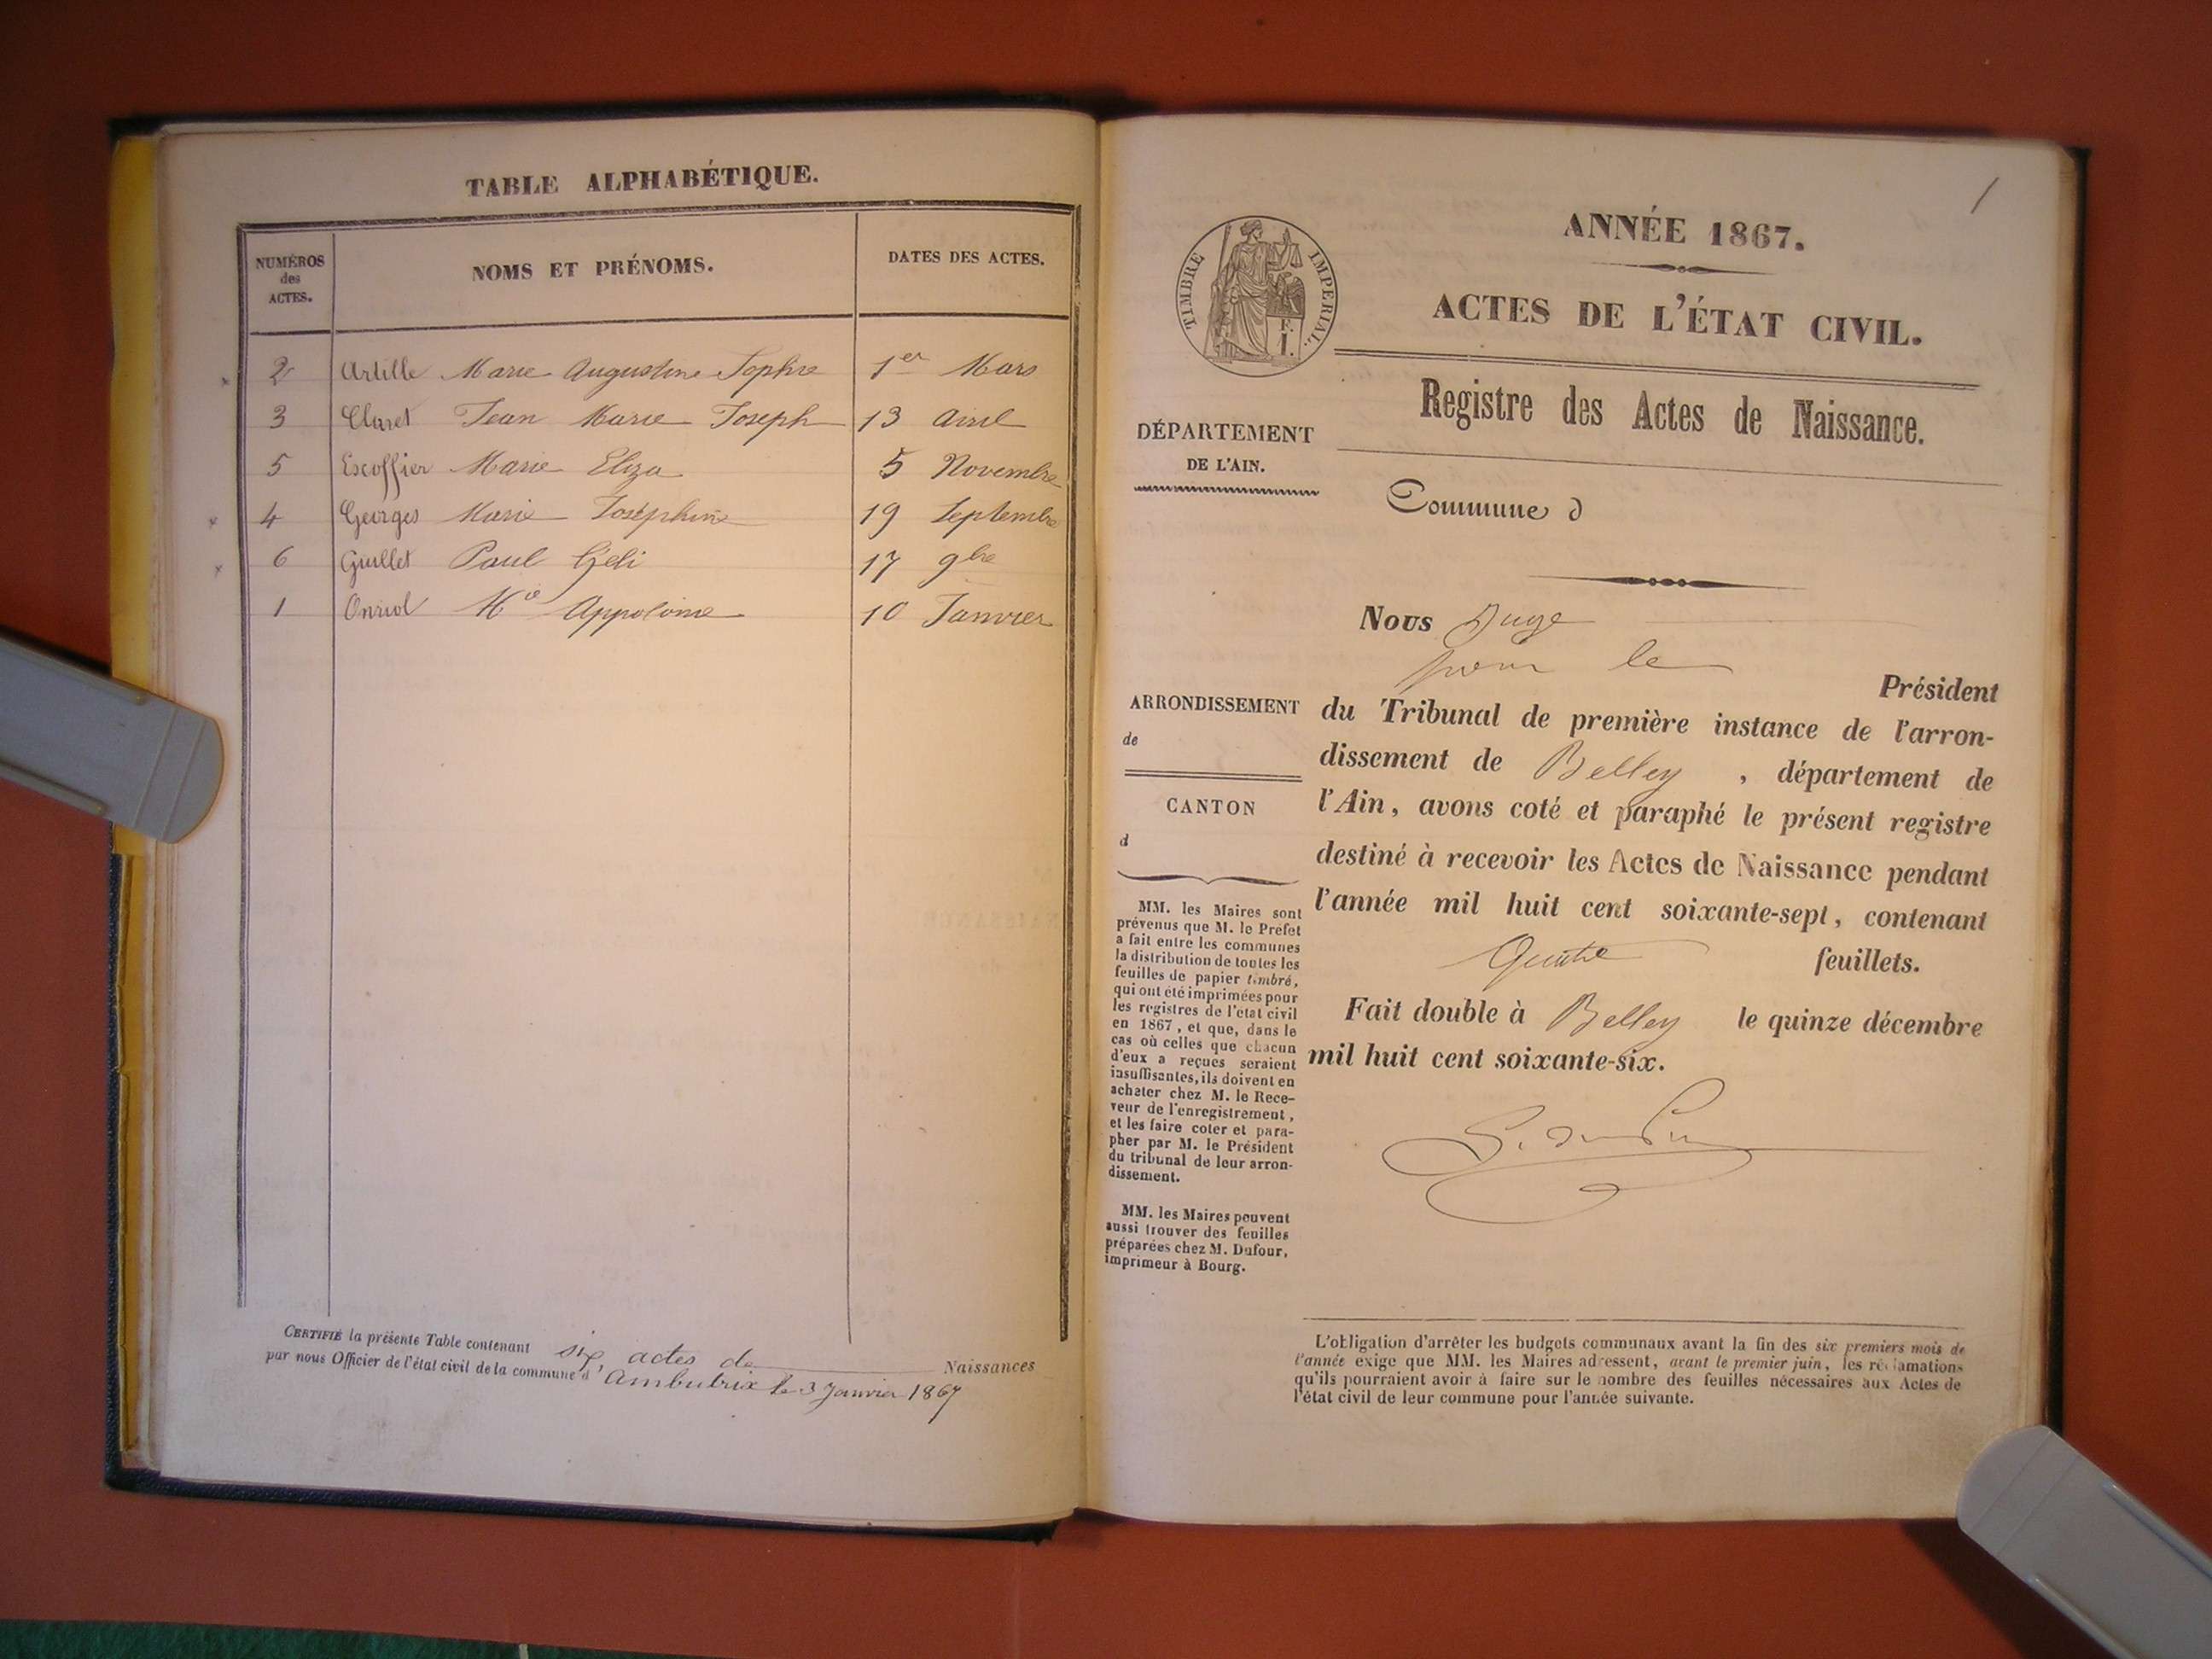 TABLE ALPHABÉTIQUE.
NUMÉROS
des
ACTES.
NOMS ET PRÉNOMS.
DATES DES ACTES.
2 Artille Marie Augustine Sophie 1er Mars
3 Claret Jean Marie Joseph 13 Avril
5 Escoffier Marie Eliza 5 Novembre
4 Georges Marie Joséphine 19 Septembre
6 Guillet Paul 17 9bre
1 Mie Appolonie 10 Janvier
CERTIFIÉ la présente Table contenant six actes de Naissances
par nous Officier de l'état civil de la commune d'Ambutrix le 3 Janvier 1867
1
TIMBRE IMPERIAL.
E.
I.
ANNÉE 1867.
ACTES DE L'ÉTAT CIVIL.
Registre des Actes de Naissance.
DÉPARTEMENT
DE L'AIN.
Commune d
Nous Juge
pour le
Président
du Tribunal de première instance de l'arron-
dissement de Belley , département de
l'Ain, avons coté et paraphé le présent registre
destiné à recevoir les Actes de Naissance pendant
l'année mil huit cent soixante-sept, contenant
Quatre feuillets.
Fait double à Belley le quinze décembre
mil huit cent soixante-six.
ARRONDISSEMENT
de
CANTON
d
MM. les Maires sont
prévenus que M. le Préfet
a fait entre les communes
la distribution de toutes les
feuilles de papier timbré,
qui ont été imprimées pour
les registres de l'état civil
en 1867, et que, dans le
cas où celles que chacun
d'eux a reçues seraient
insuffisantes, ils doivent en
acheter chez M. le Rece-
veur de l'enregistrement,
et les faire coter et para-
pher par M. le Président
du tribunal de leur arron-
dissement.
MM. les Maires peuvent
aussi trouver des feuilles
préparées chez M. Dufour,
imprimeur à Bourg.
L'obligation d'arrêter les budgets communaux avant la fin des six premiers mois de
l'année exige que MM. les Maires adressent, avant le premier juin, les réclamations
qu'ils pourraient avoir à faire sur le nombre des feuilles nécessaires aux Actes de
l'état civil de leur commune pour l'année suivante.